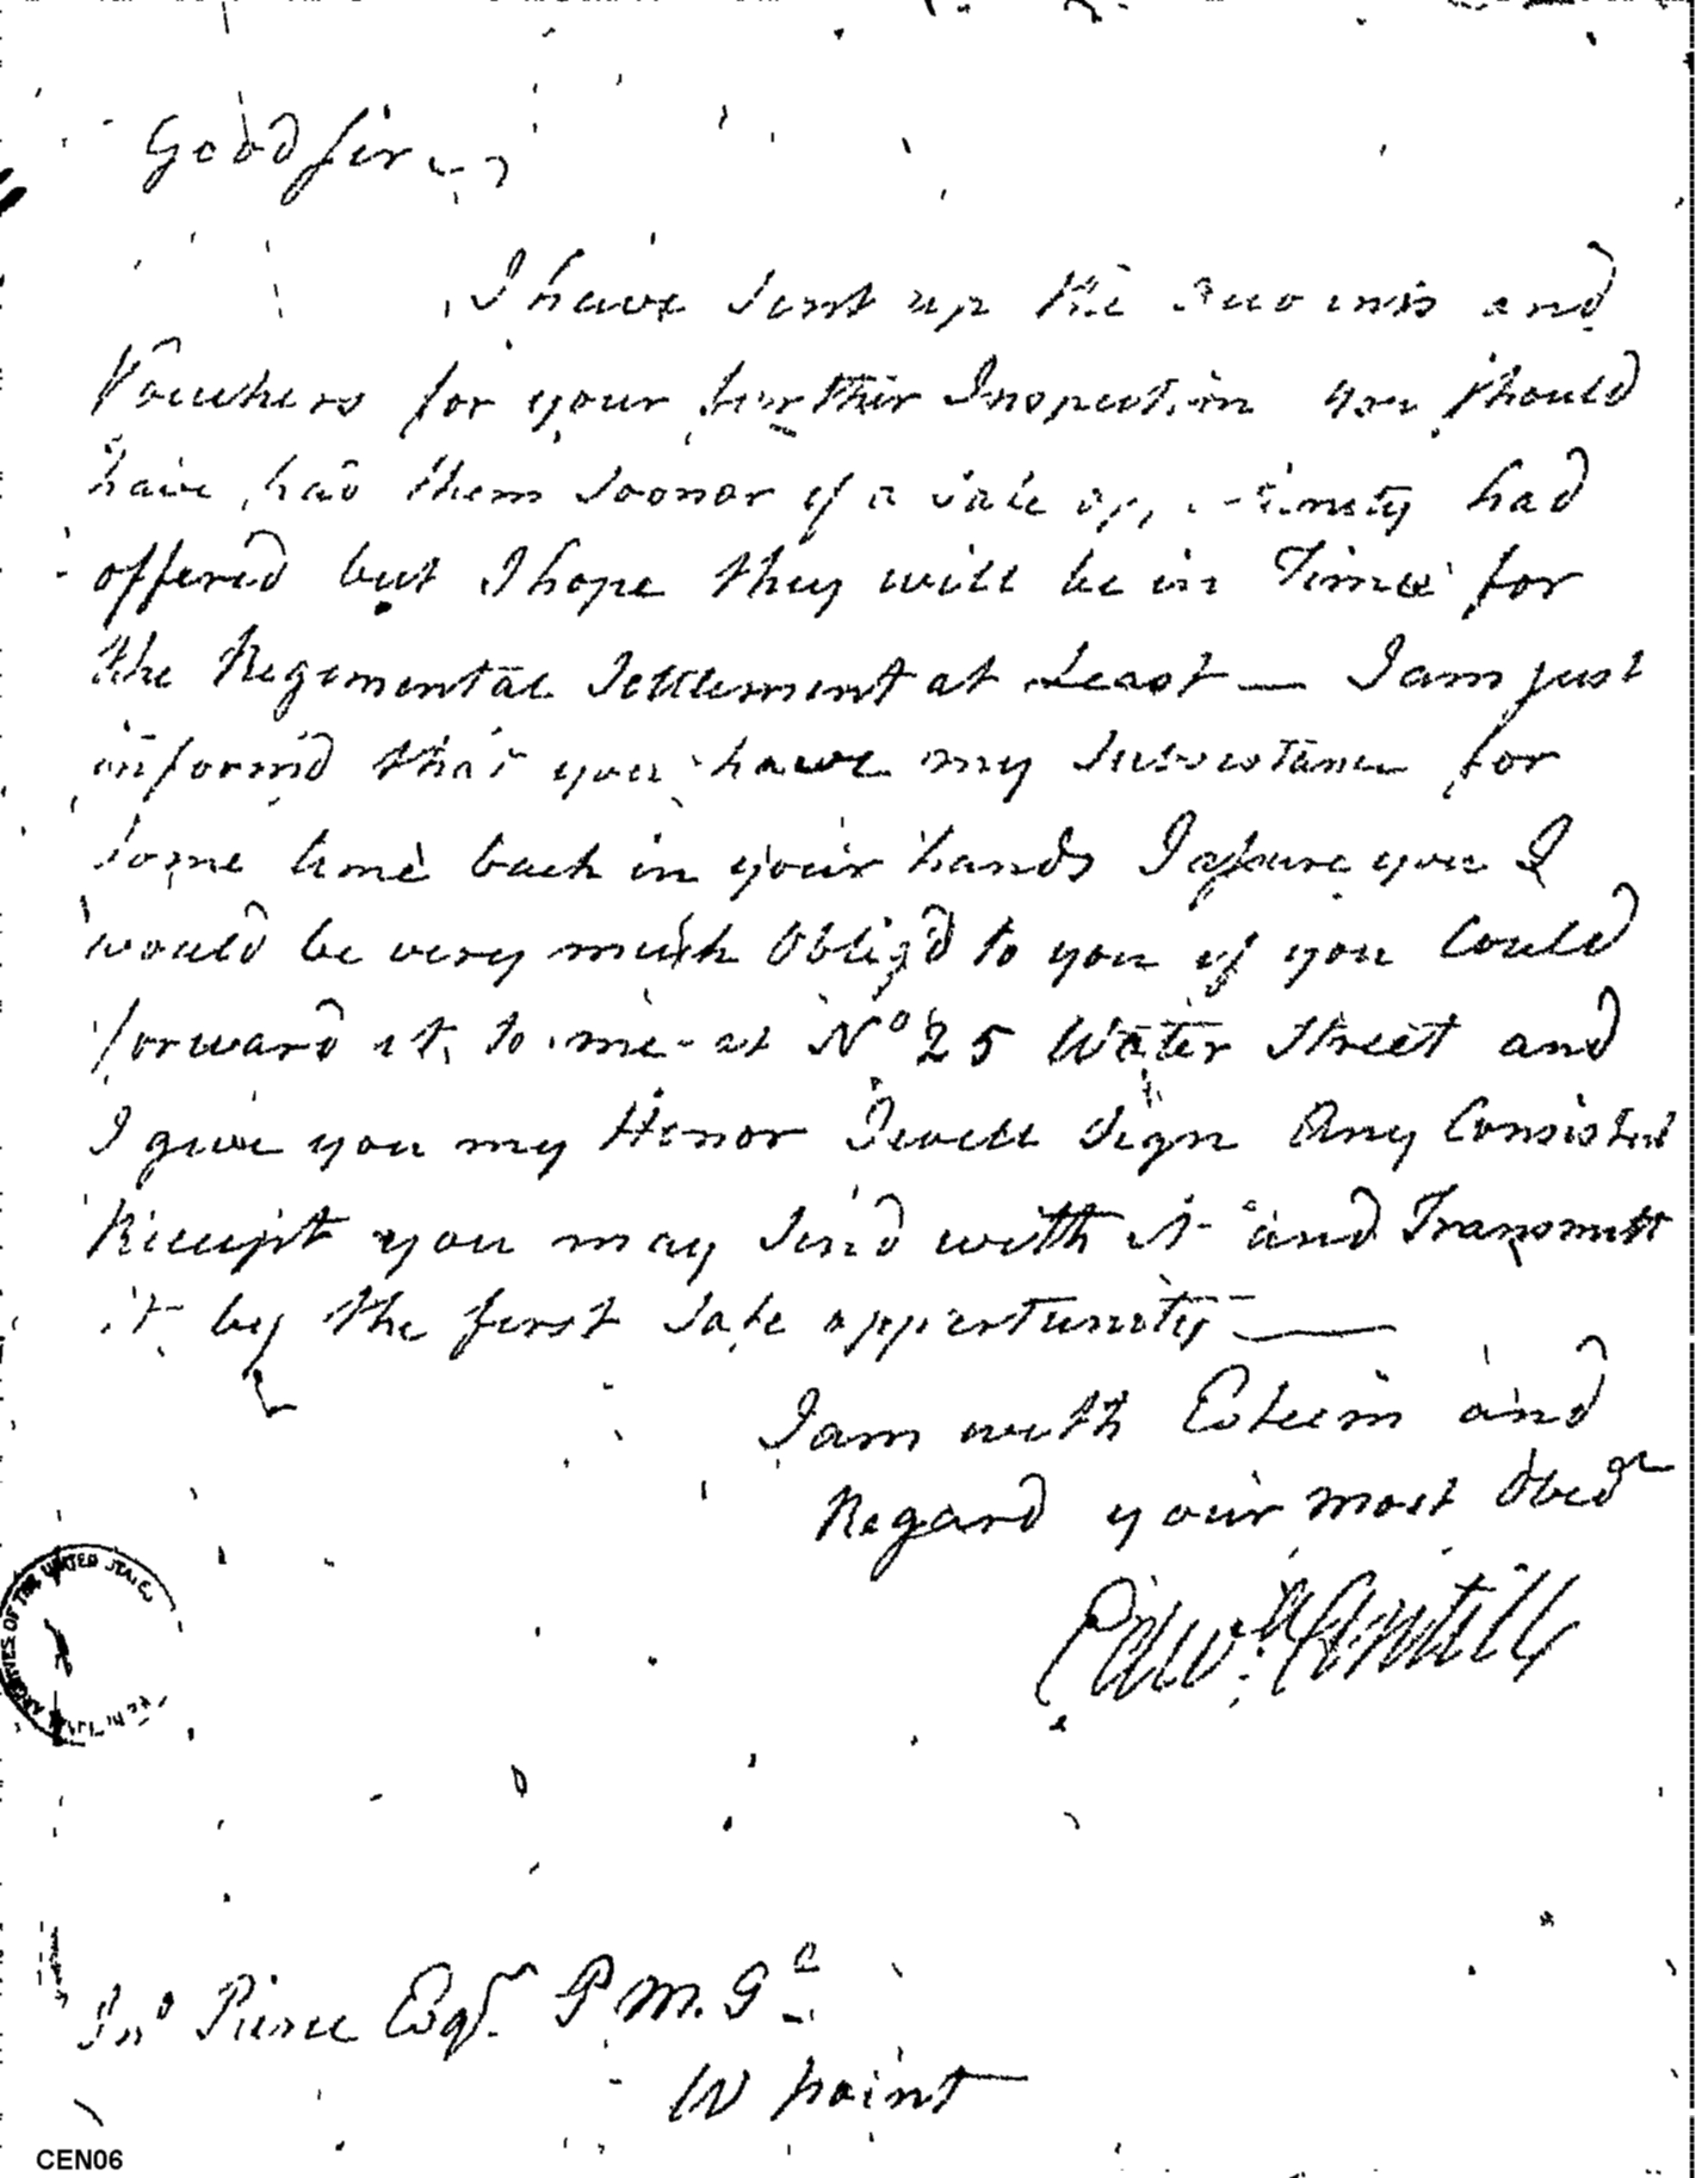 Good Sir
I have Sent up the Accounts and
Vouchers for your further Inspection you should
have had them Soonor if a Safe opportunity had
offered but I hope they will be in Time for
the Regimental Settlement at Least — I am just
inform'd that you have my Subsistance for
Some time back in your hands I assure you I
would be very much Oblig'd to you if you Could
forward it to me at No 25 Water Street and
I give you my Honor I will Sign Any Consistent
Receipt you may Send with it and Transmitt
it by the first Safe oppertunity —
I am with Esteem and
Regard your most Obedt
Edwd Antill
Jno Pierce Esqr P. M. Gl
W point
CEN06